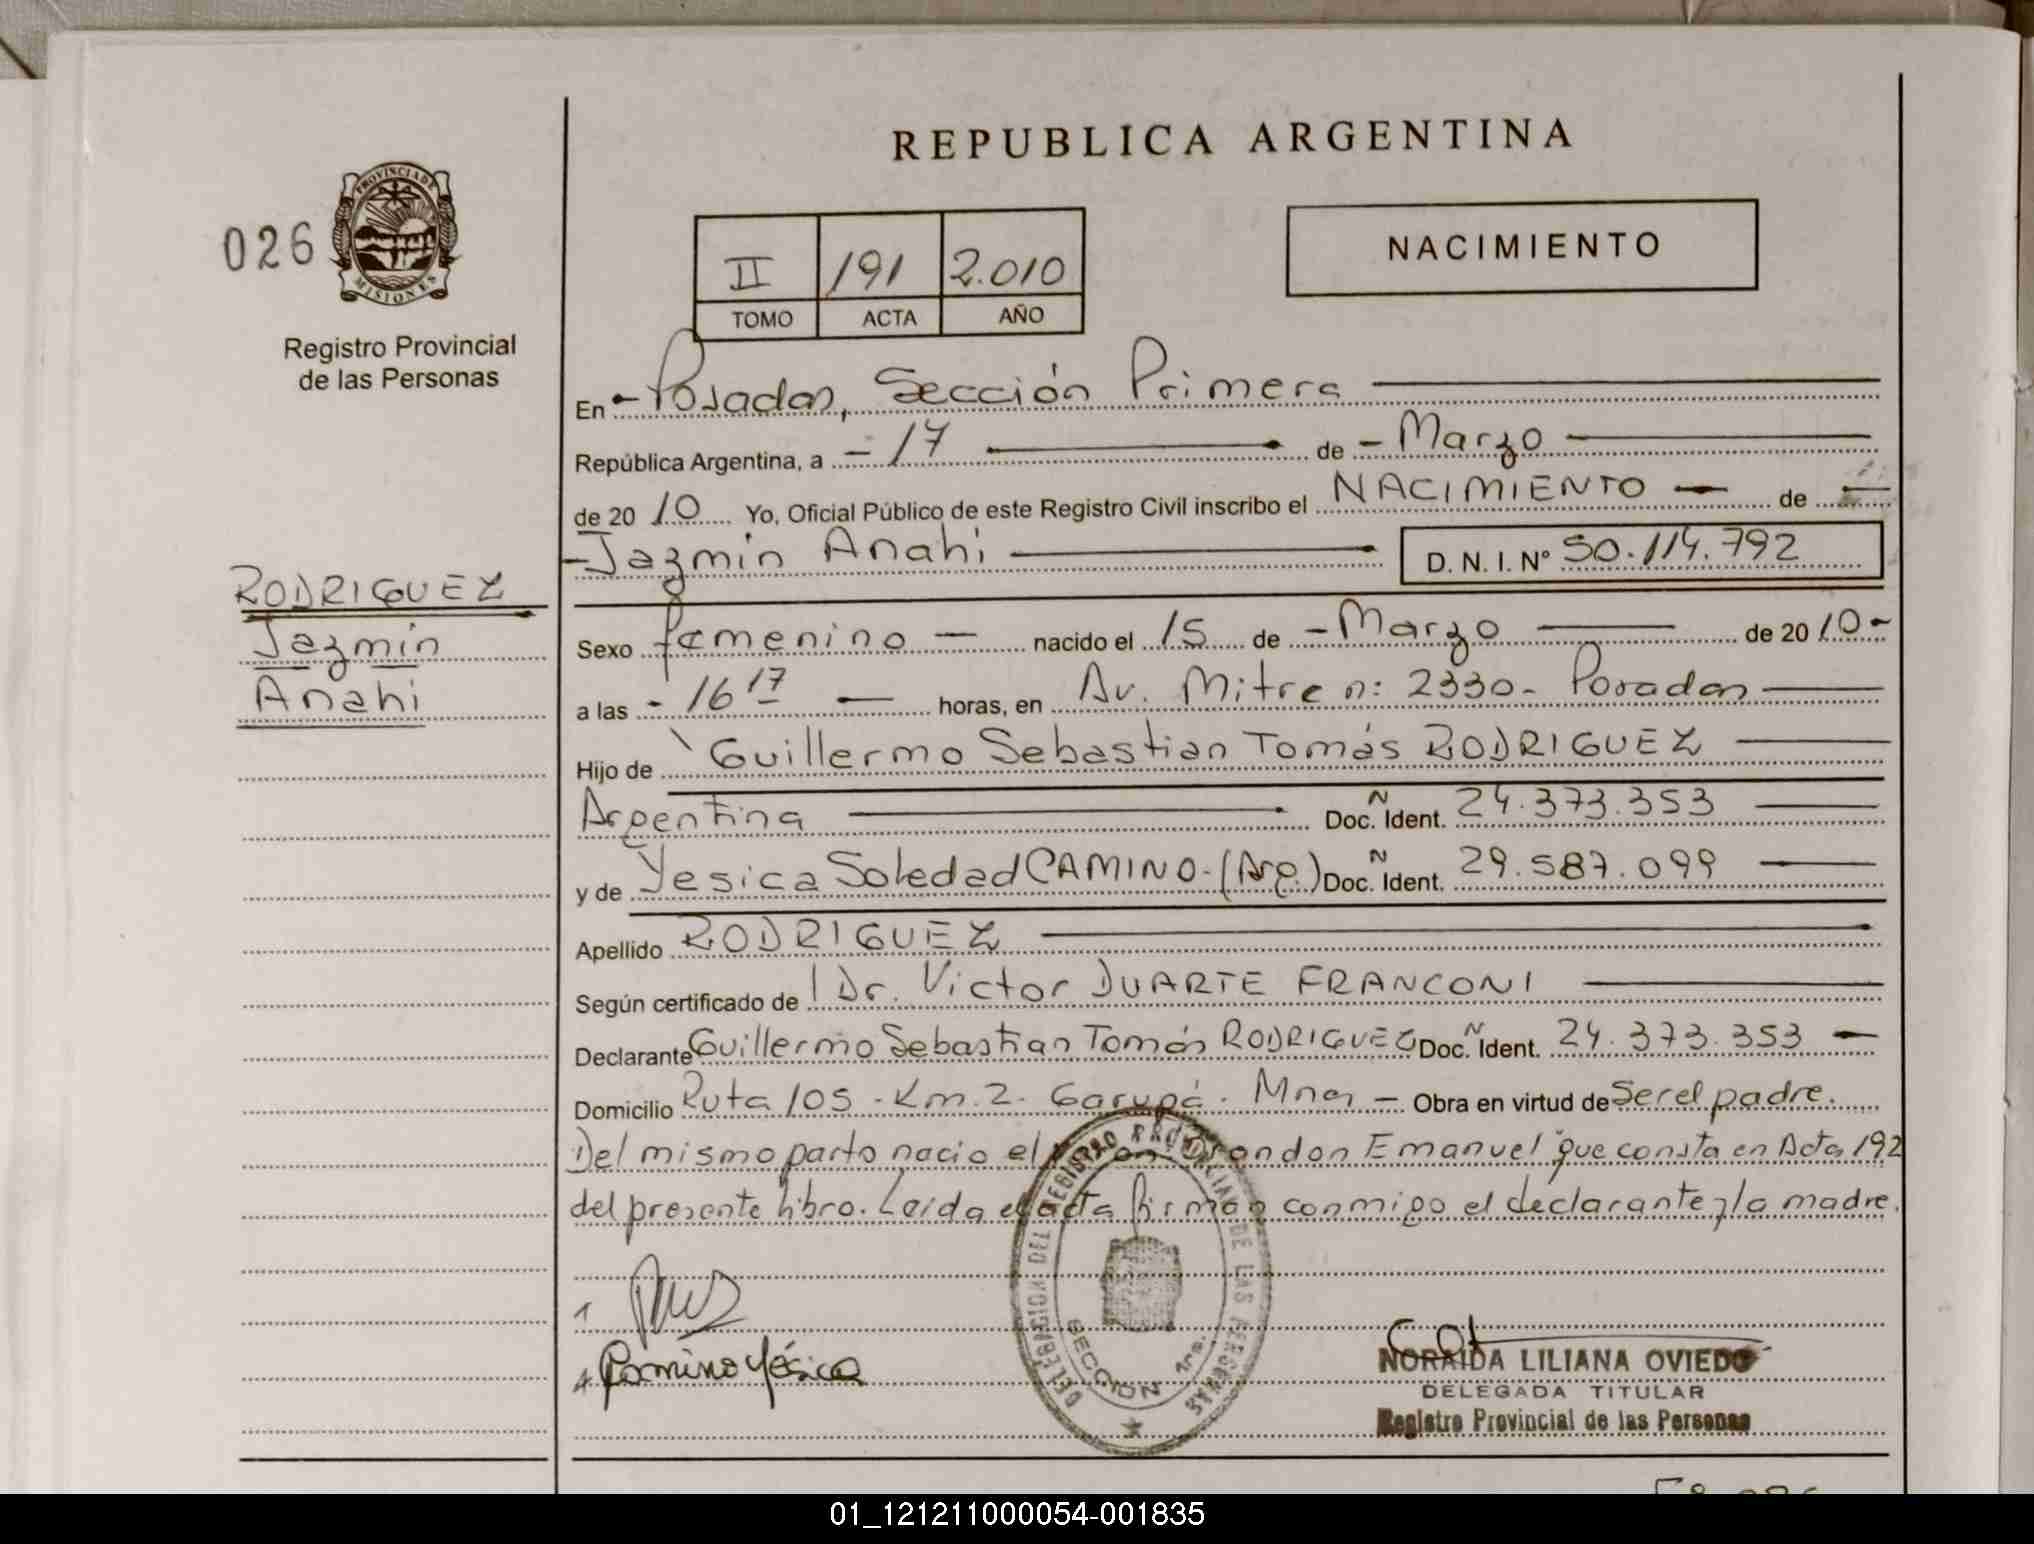 REPUBLICA ARGENTINA
026
PROVINCIA DE
MISIONES
Registro Provincial
de las Personas
II 191 2.010
TOMO ACTA AÑO
NACIMIENTO
En Posadas, Sección Primera
República Argentina, a 17 de Marzo
de 2010 Yo, Oficial Público de este Registro Civil inscribo el NACIMIENTO de
Jazmin Anahi D. N. I. Nº 50.114.792
RODRIGUEZ
Jazmin
Anahi
Sexo femenino nacido el 15 de Marzo de 2010
a las 16 17 horas, en Av. Mitre n: 2330 - Posadas
Hijo de Guillermo Sebastian Tomás RODRIGUEZ
Argentina Doc. Ñ Ident. 24.373.353
y de Yesica Soledad CAMINO - (Arg.) Doc. Ñ Ident. 29.587.099
Apellido RODRIGUEZ
Según certificado de Dr. Victor DUARTE FRANCONI
Declarante Guillermo Sebastian Tomás RODRIGUEZ Doc. Ñ Ident. 24.373.353
Domicilio Ruta 105 - Km. 2 - Garupá - Mnes Obra en virtud de Ser el padre.
Del mismo parto nacio el Emanuel que consta en Acta 192
del presente libro. Leida el acta firman conmigo el declarante y la madre.
DELEGACION DEL REGISTRO PROVINCIAL DE LAS PERSONAS
SECCION 1ra.
Camino Yésica
NORAIDA LILIANA OVIEDO
DELEGADA TITULAR
Registro Provincial de las Personas
01_121211000054-001835